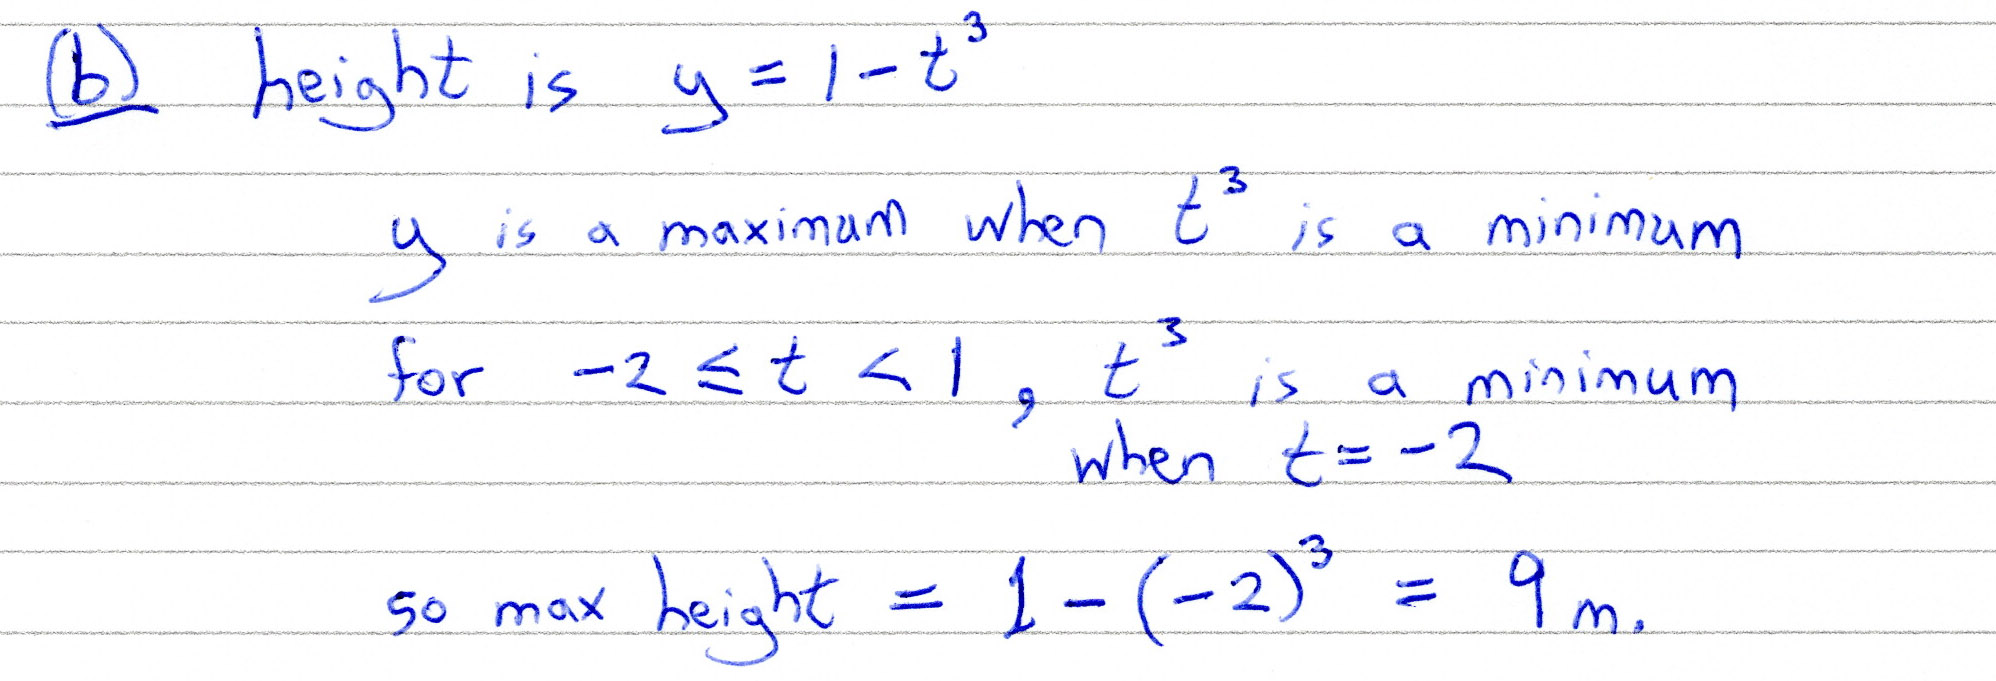 (b) height is y = 1 - t³
y is a maximum when t³ is a minimum
for -2 ≤ t < 1, t³ is a minimum
when t = -2
so max height = 1 - (-2)³ = 9 m.